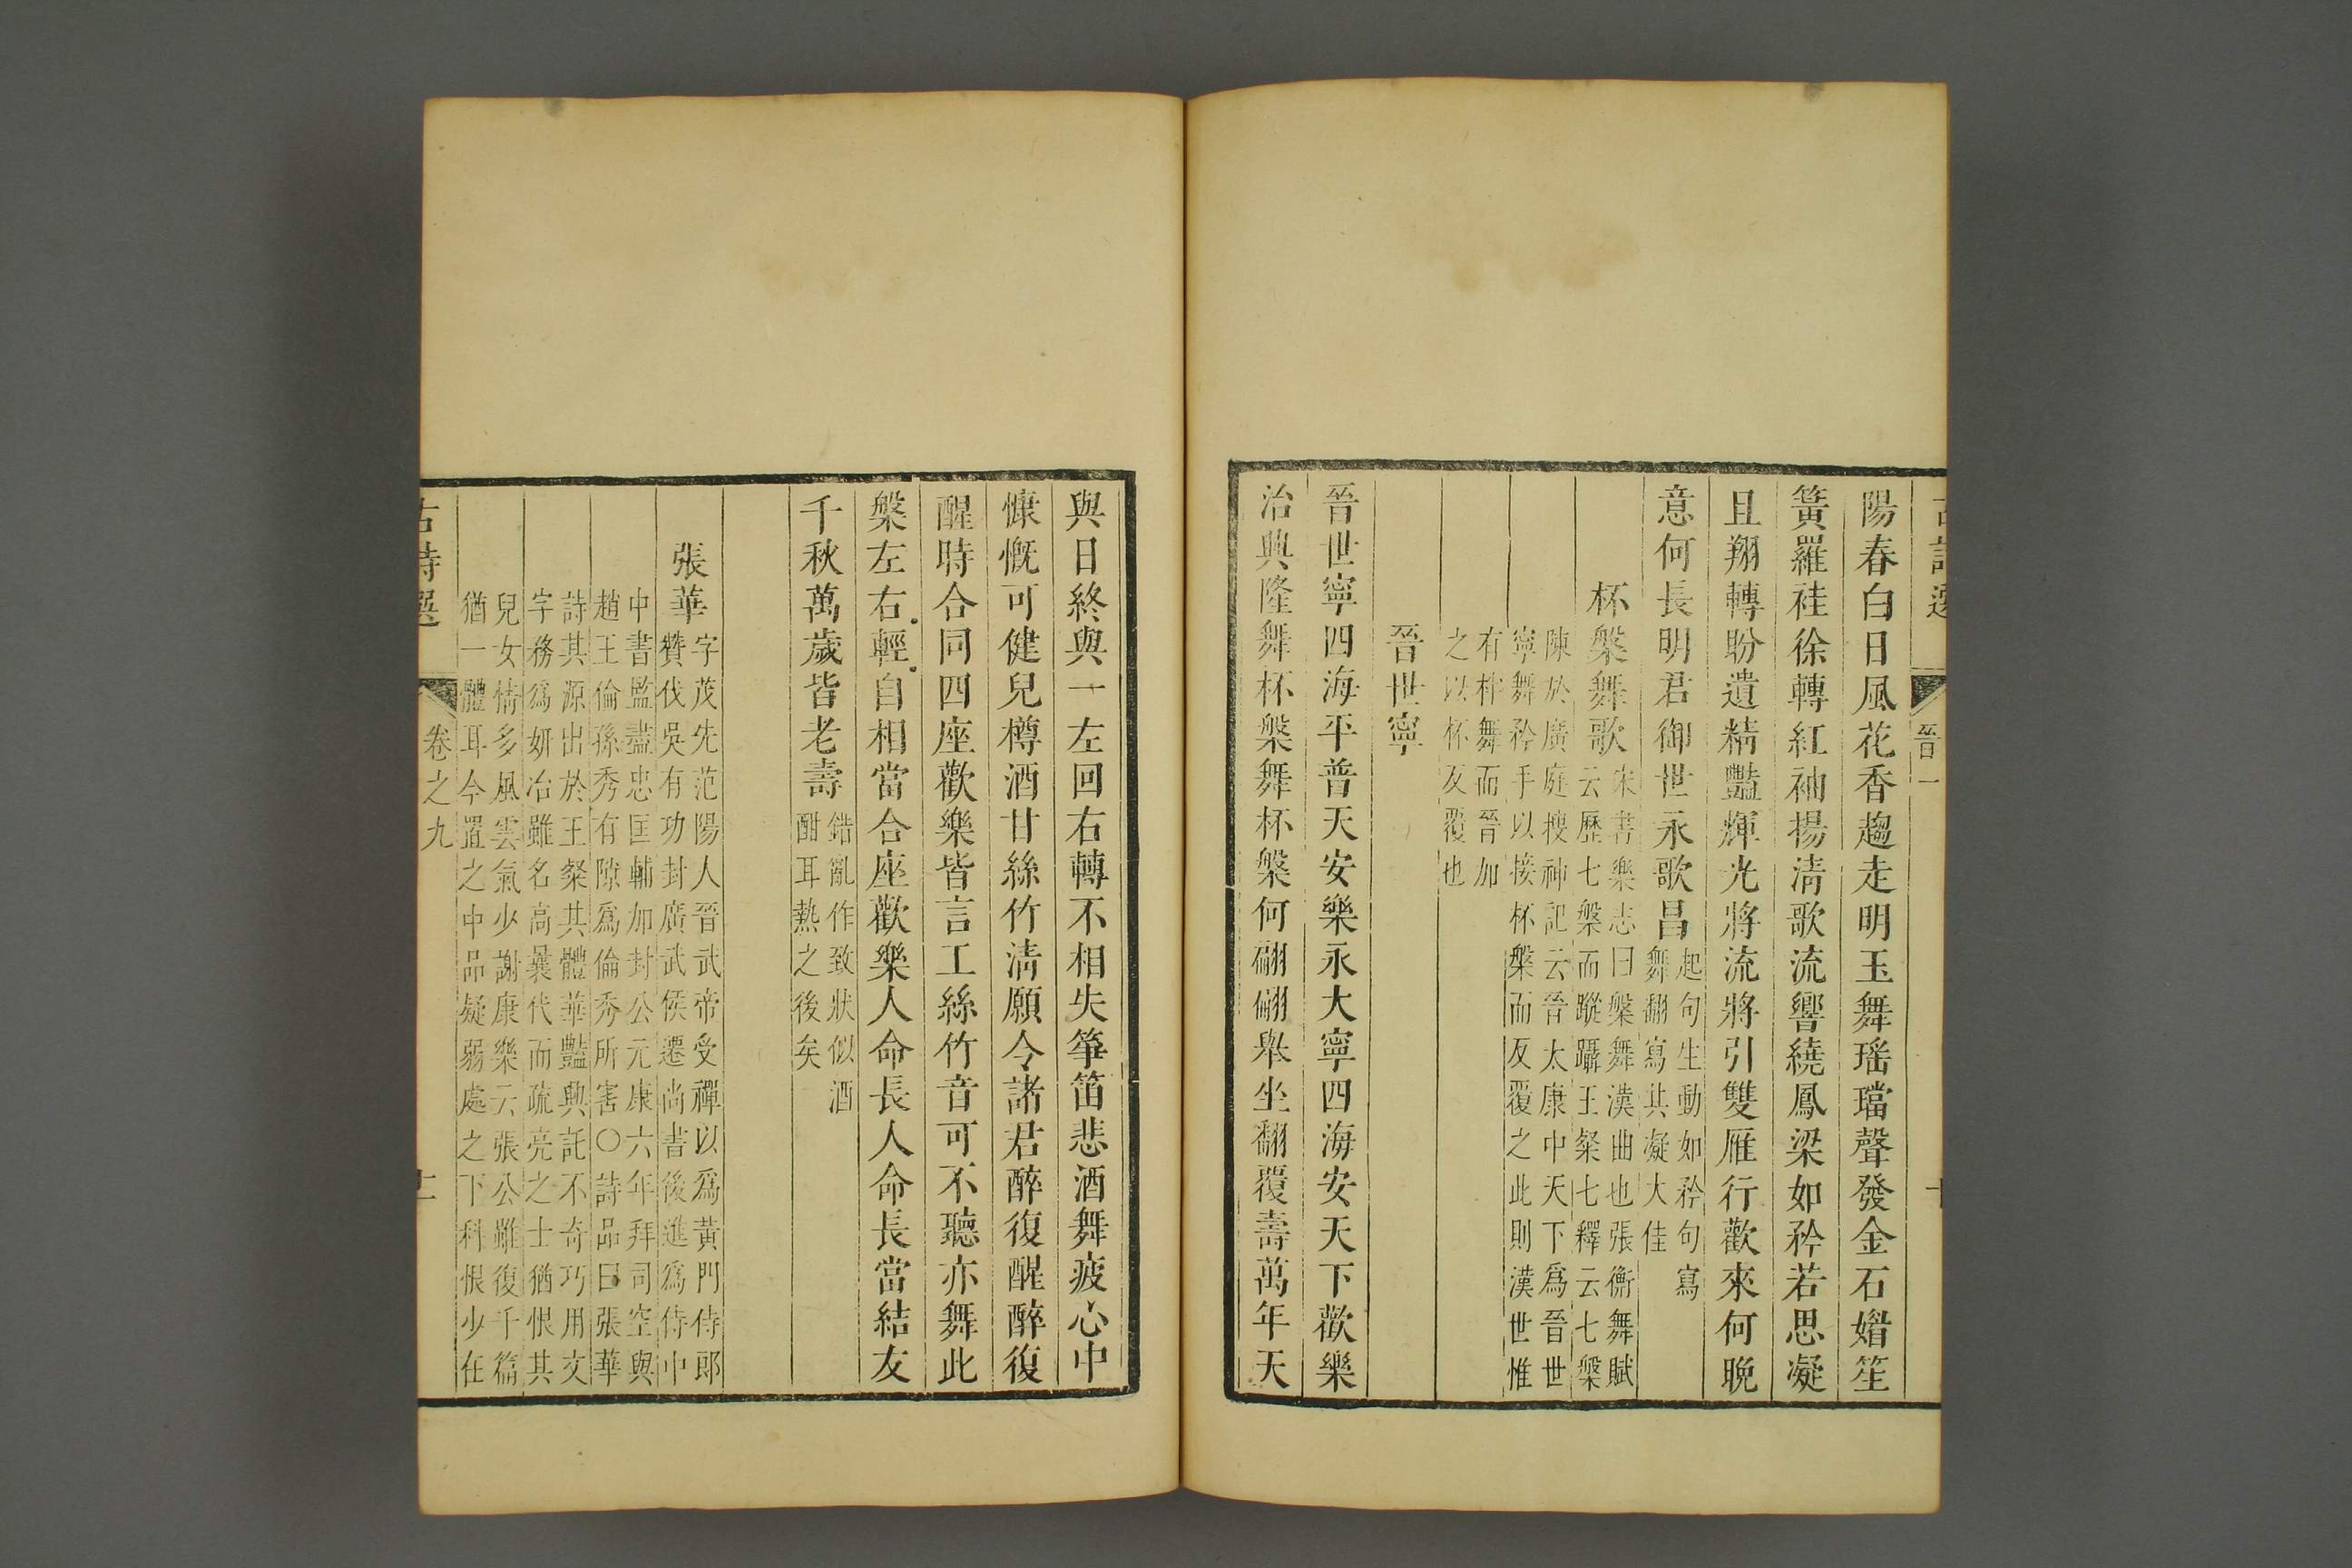 陽春白日風花香趨走明玉舞瑤璫聲發金石媚笙
簧羅袿徐轉紅袖揚清歌流響繞鳳梁如矜若思凝
且翔轉盼遺精豔輝光將流將引雙雁行歡來何晚
意何長明君御世永歌昌
起句生動如矜句寫
舞翻寫其凝大佳
杯槃舞歌
宋書樂志曰槃舞漢曲也張衡舞賦
云歷七槃而蹝躡王粲七釋云七槃
陳於廣庭搜神記云晉太康中天下爲晉世
寧舞矜手以接杯槃而反覆之此則漢世惟
有柈舞而晉加
之以杯反覆也
晉世寧
晉世寧四海平普天安樂永大寧四海安天下歡樂
治興隆舞杯槃舞杯槃何翩翩舉坐翻覆壽萬年天
與日終與一左回右轉不相失箏笛悲酒舞疲心中
慷慨可健兒樽酒甘絲竹清願令諸君醉復醒醉復
醒時合同四座歡樂皆言工絲竹音可不聽亦舞此
槃左右輕自相當合座歡樂人命長人命長當結友
千秋萬歲皆老壽
錯亂作致狀似酒
酣耳熱之後矣
張華
字茂先范陽人晉武帝受禪以爲黃門侍郎
贊伐吳有功封廣武侯遷尚書後進爲侍中
中書監盡忠匡輔加封公元康六年拜司空與
趙王倫孫秀有隙爲倫秀所害○詩品曰張華
詩其源出於王粲其體華豔興託不奇巧用文
字務爲妍冶雖名高曩代而疏亮之士猶恨其
兒女情多風雲氣少謝康樂云張公雖復千篇
猶一體耳今置之中品疑弱處之下科恨少在
古詩選
卷之九